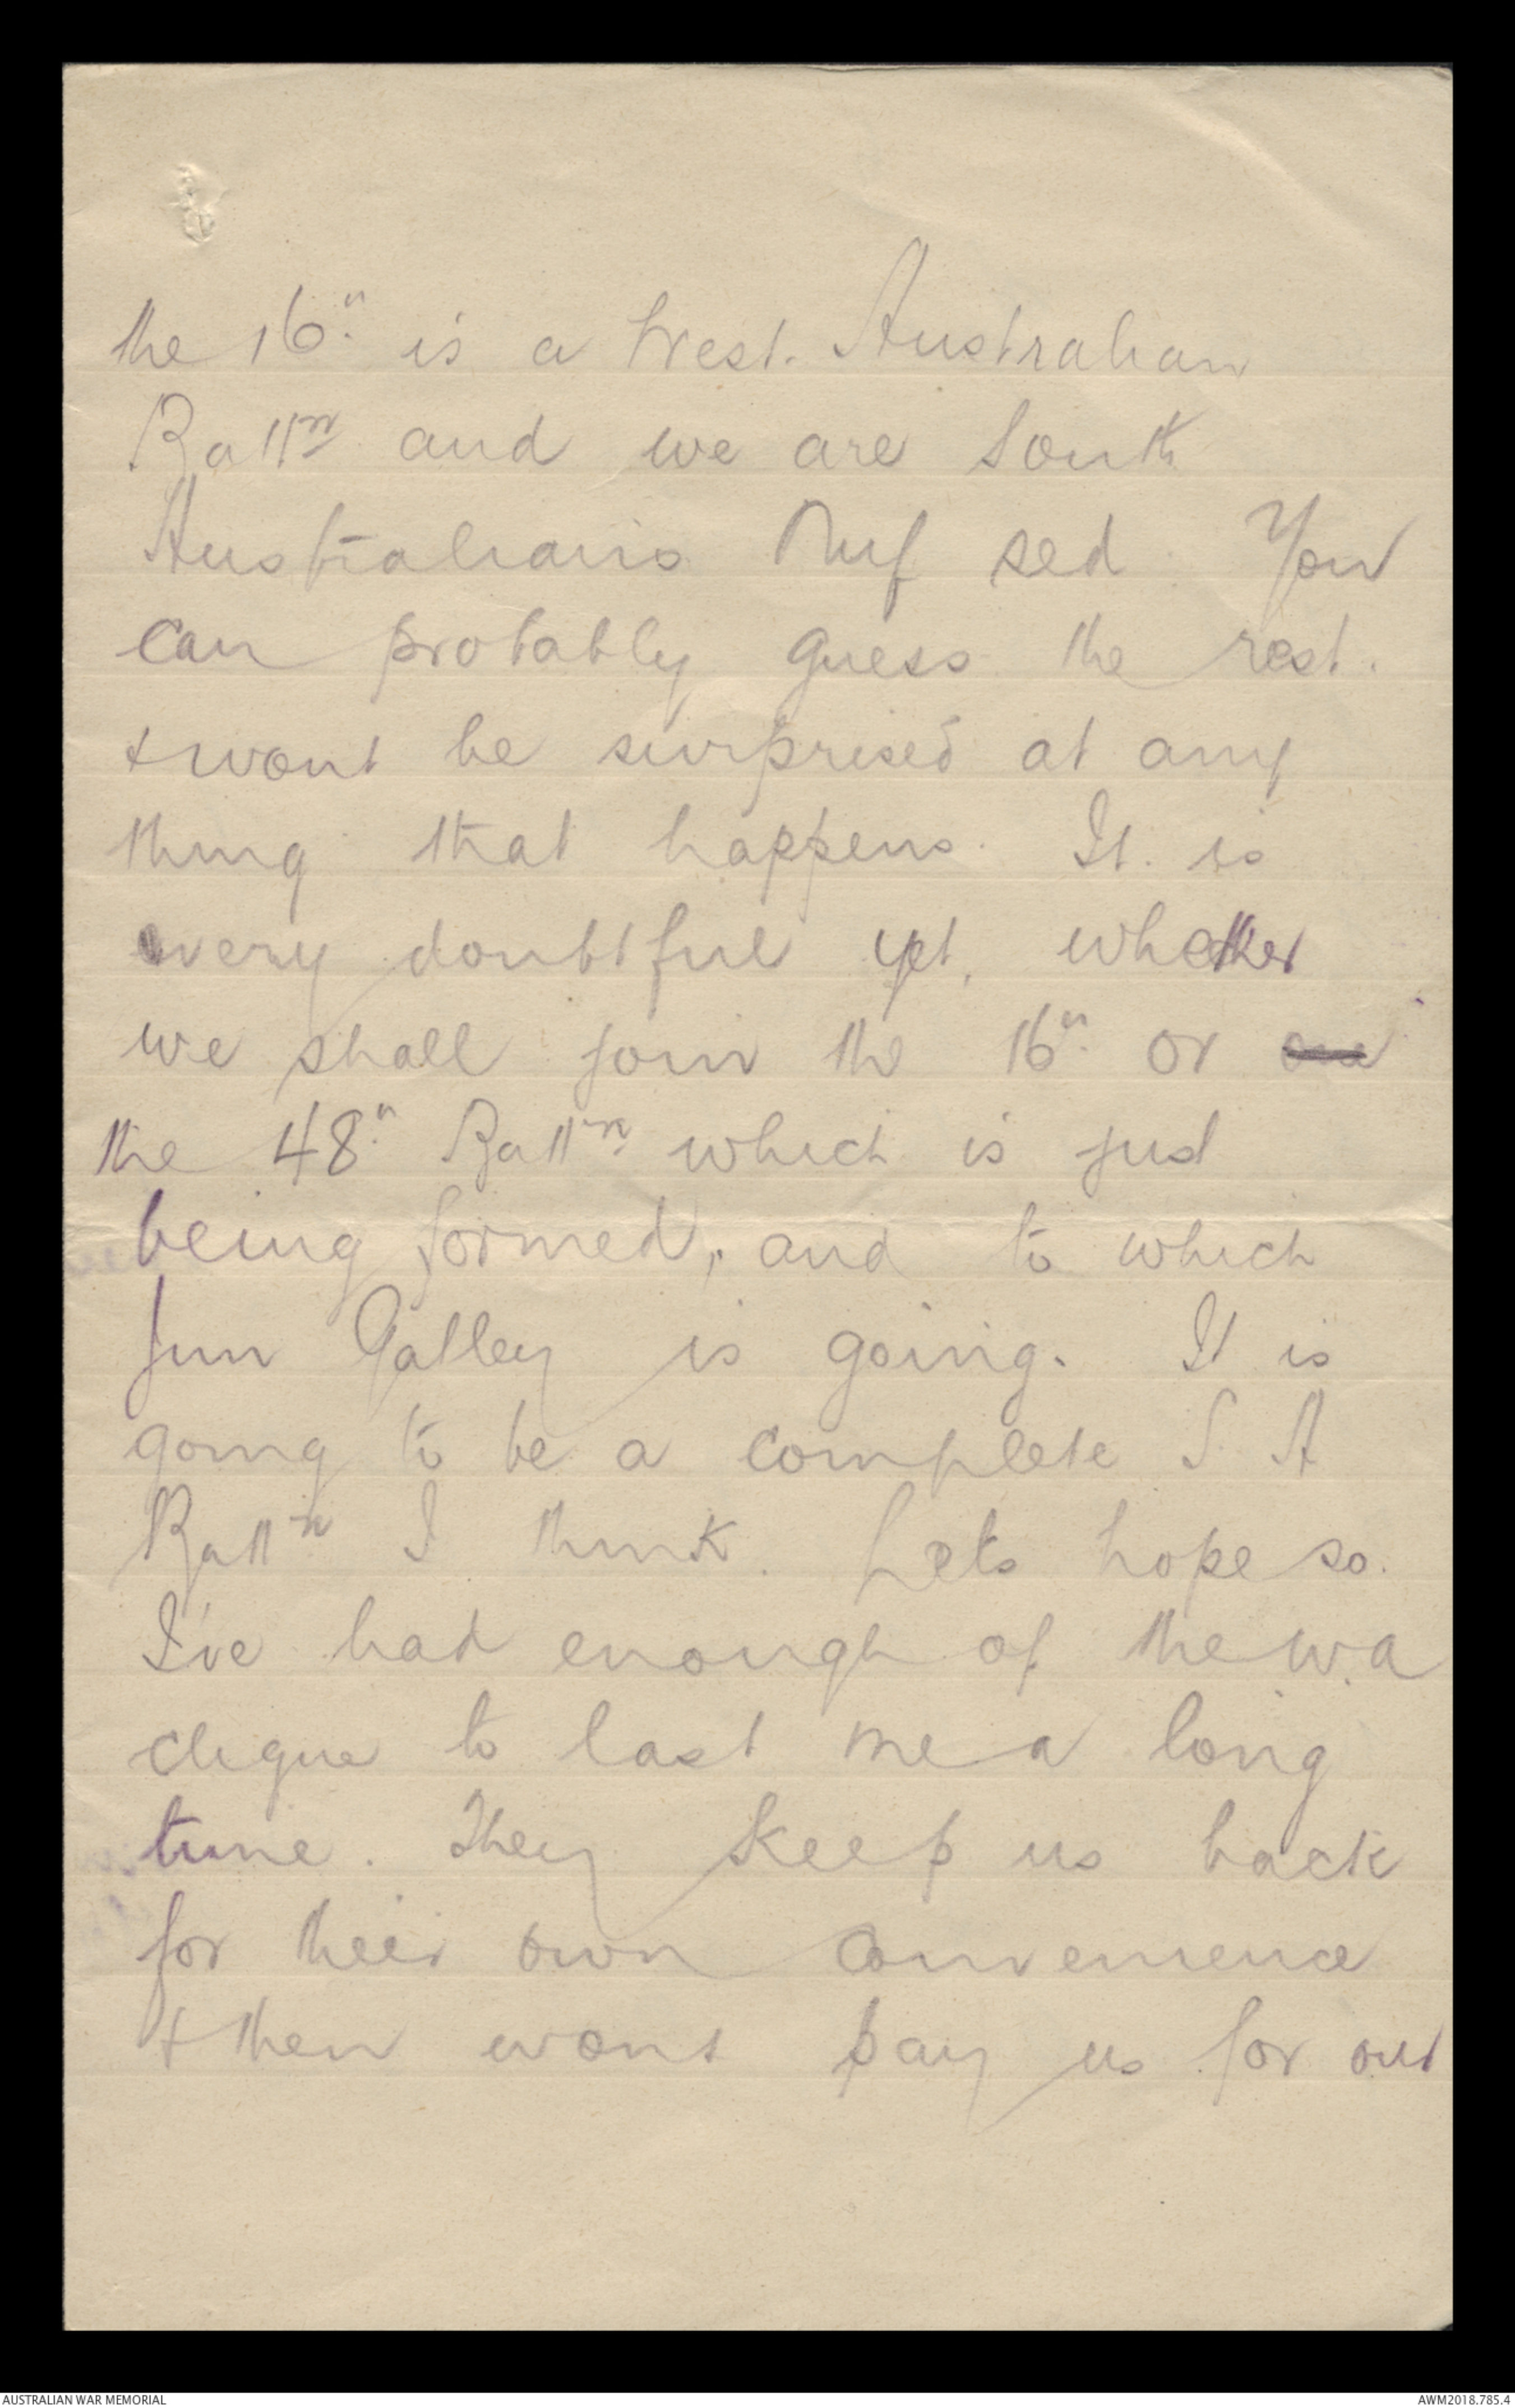 the 16" is a West. Australian
Battn and we are South
Australians Nuf sed. You
can probably guess the rest.
+ wont be surprised at any
thing that happens. It is
very doubtful yet, whether
we shall join the 16" or
the 48" Battn which is just
being formed, and to which
Jim Galley is going. It is
going to be a complete S. A
Battn I think. Lets hope so.
I've had enough of the W.A
clique to last me a long
time. They keep us back
for their own convenience
+ then wont pay us for our
AUSTRALIAN WAR MEMORIAL
AWM2018.785.4